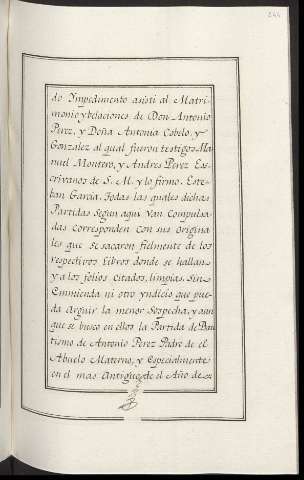 244
do Ympedimento asistí al Matri-
monio y belaciones de Don Antonio
Perez, y Doña Antonia Cobelo, y
Gonzalez al qual fueron testigos Ma
nuel Montero, y Andres Perez Es-
crivanos de S. M. y lo firmo. Este-
ban Garcia. Todas las quales dichas
Partidas Segun aqui Van Compulsa
das Corresponden con sus origina
les que Se sacaron fielmente de los
respectivos Libros donde se hallan
y a los folios Citados, limpias, Sin
Enmienda ni otro yndicio que pue-
da Arguir la menor Sospecha, y aun
que se busco en ellos la Partida de Bau
tismo de Antonio Perez Padre de el
Abuelo Materno, y Especialmente
en el mas Antiguo de el Año de